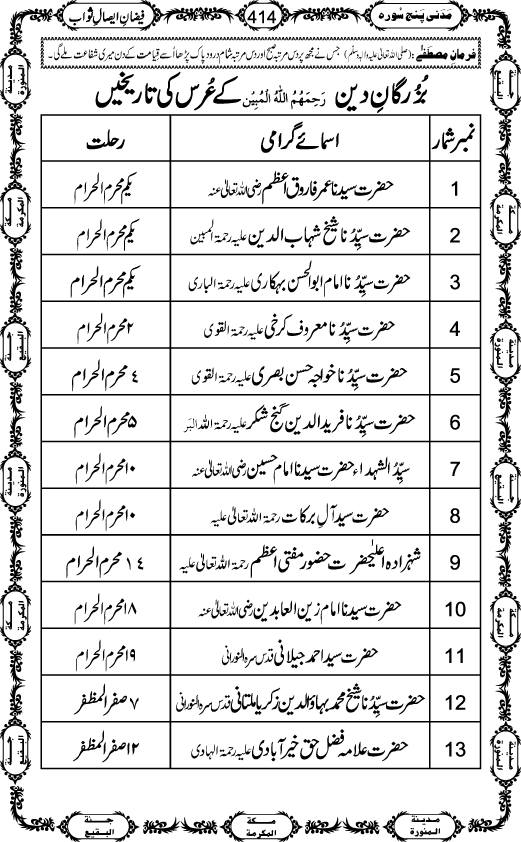 مَدَنی پنج سُورہ 414 فیضانِ ایصالِ ثواب
فرمانِ مصطفٰی: (صلی اللہ تعالیٰ علیہ والہ وسلم) جس نے مجھ پر دس مرتبہ صبح اور دس مرتبہ شام درود پاک پڑھا اُسے قیامت کے دن میری شفاعت ملے گی۔
بُزُرگانِ دین رَحِمَهُمُ اللّٰهُ الْمُبِيْن کے عُرس کی تاریخیں
نمبر شمار اسمائے گرامی رحلت
1 حضرت سیدنا عمر فاروق اعظم رضی اللہ تعالیٰ عنہ یکم محرم الحرام
2 حضرت سیِّدُنا شیخ شہاب الدین علیہ رحمۃ المبین یکم محرم الحرام
3 حضرت سیِّدُنا امام ابوالحسن بہکاری علیہ رحمۃ الباری یکم محرم الحرام
4 حضرت سیِّدُنا معروف کرخی علیہ رحمۃ القوی ۲ محرم الحرام
5 حضرت سیِّدُنا خواجہ حسن بصری علیہ رحمۃ القوی ٤ محرم الحرام
6 حضرت سیِّدُنا فرید الدین گنج شکر علیہ رحمۃ اللہ البَر ۵ محرم الحرام
7 سیِّدُ الشہداء حضرت سیدنا امام حسین رضی اللہ تعالیٰ عنہ ۱۰ محرم الحرام
8 حضرت سید آلِ برکات رحمۃ اللہ تعالیٰ علیہ ۱۰ محرم الحرام
9 شہزادہ اعلیٰحضرت حضور مفتی اعظم رحمۃ اللہ تعالیٰ علیہ ١٤ محرم الحرام
10 حضرت سیدنا امام زین العابدین رضی اللہ تعالیٰ عنہ ۱۸ محرم الحرام
11 حضرت سید احمد جیلانی قدس سرہ النورانی ۱۹ محرم الحرام
12 حضرت سیِّدُنا شیخ محمد بہاؤالدین زکریا ملتانی قدس سرہ النورانی ۷ صفر المظفر
13 حضرت علامہ فضل حق خیرآبادی علیہ رحمۃ الہادی ۱۲ صفر المظفر
مدینة المنورة
مكة المكرمة
جنة البقيع
مدينة المنورة
مكة المكرمة
جنة البقيع
جنة البقيع
مكة المكرمة
مدينة المنورة
جنة البقيع
مكة المكرمة
مدينة المنورة
مدينة المنورة
مكة المكرمة
جنة البقيع